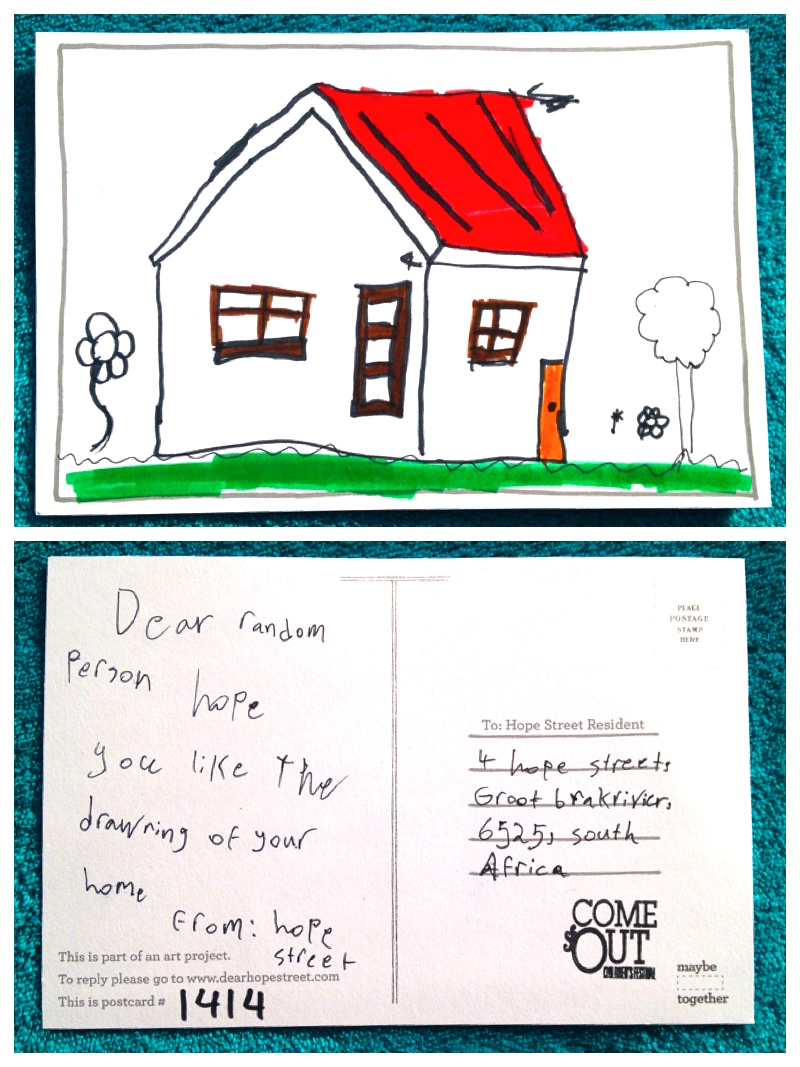 Dear random
Person hope
you like the
drawning of your
home
From: hope
street
This is part of an art project.
To reply please go to www.dearhopestreet.com
This is postcard # 1414
PLACE
POSTAGE
STAMP
HERE
To: Hope Street Resident
4 hope street,
Groot brakrivier,
6525, south
Africa
COME
OUT
CHILDREN'S FESTIVAL
maybe
together